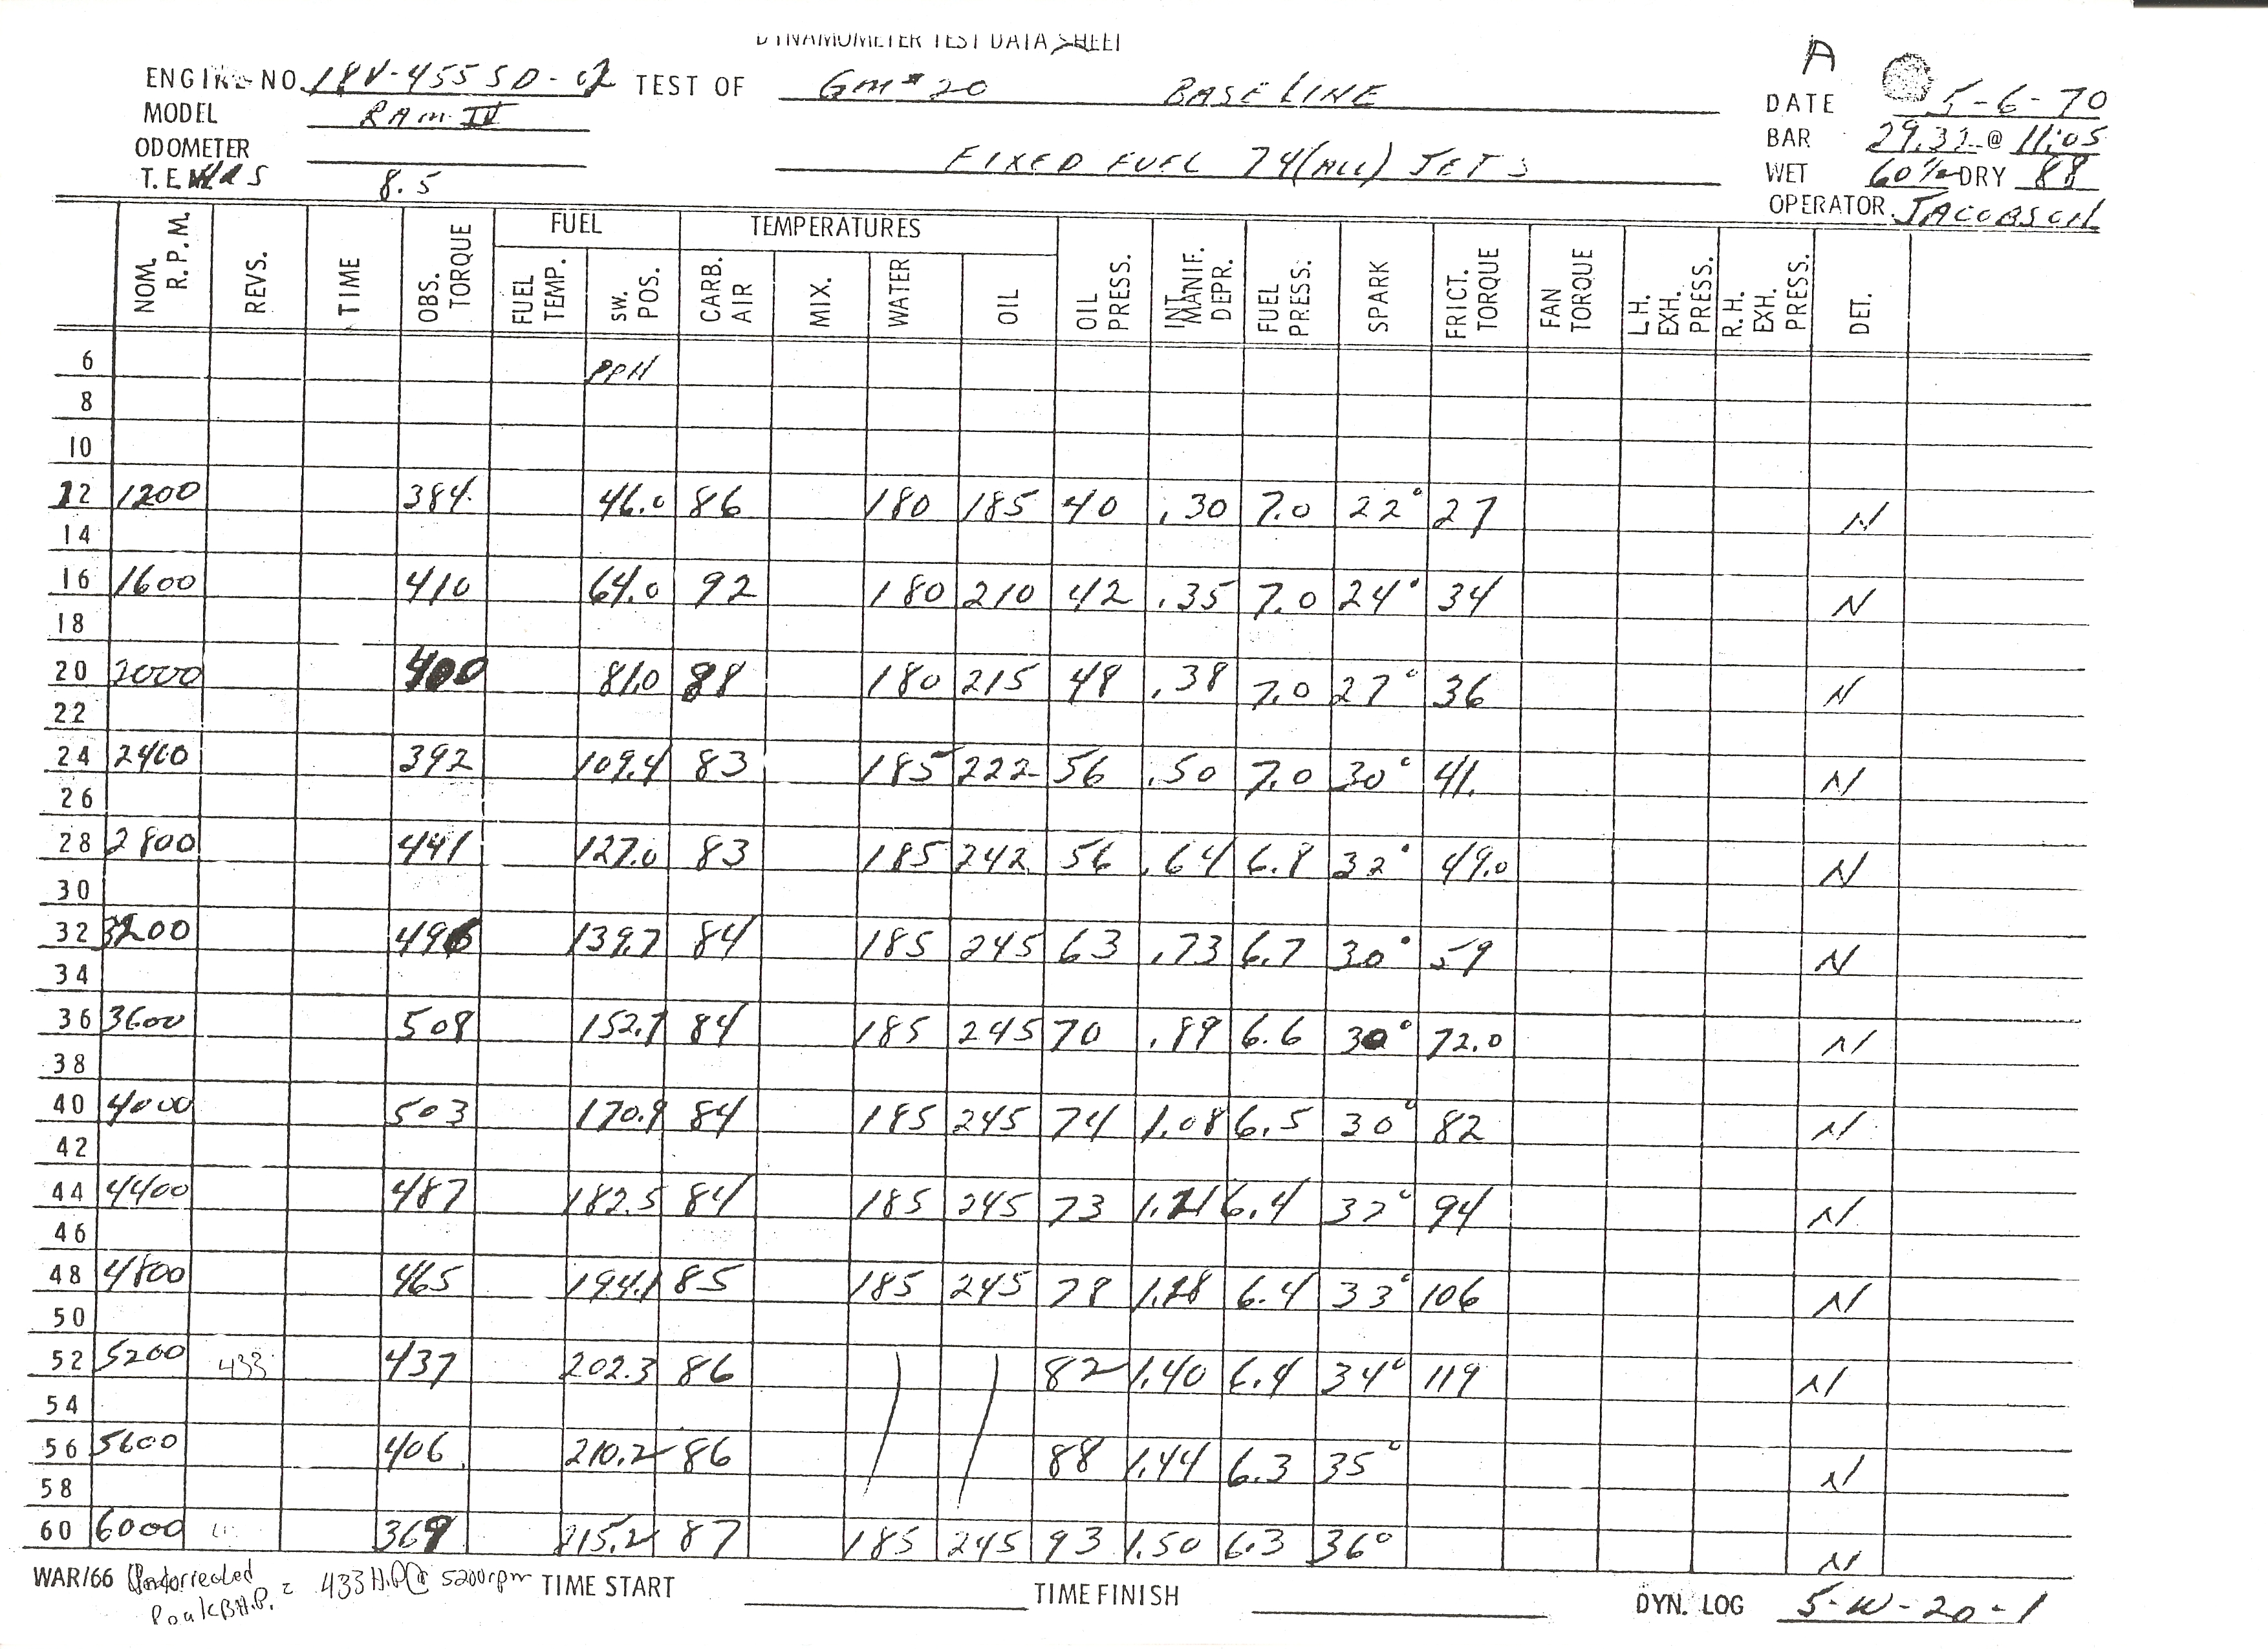 DYNAMOMETER TEST DATA SHEET
A
ENGINE NO. 18V-455SD-02 TEST OF GM#20 BASELINE
DATE 5-6-70
MODEL RAM IV
BAR 29.32 @ 11:05
ODOMETER
FIXED FUEL 74(ALL) JETS
WET 60% DRY 88
8.5
OPERATOR JACOBSON
FUEL TEMPERATURES
NOM. R.P.M. REVS. TIME OBS. TORQUE FUEL TEMP. SW. POS. CARB. AIR MIX. WATER OIL OIL PRESS. INT. MANIF. DEPR. FUEL PRESS. SPARK FRICT. TORQUE FAN TORQUE L.H. EXH. PRESS. R.H. EXH. PRESS. DET.
6 PPH
8
10
12 1200 384. 46.0 86 180 185 40 .30 7.0 22° 27 N
14
16 1600 410 64.0 92 180 210 42 .35 7.0 24° 34 N
18
20 2000 400 81.0 88 180 215 48 .38 7.0 27° 36 N
22
24 2400 392 109.4 83 185 222 56 .50 7.0 30° 41. N
26
28 2800 441 127.0 83 185 242 56 .64 6.8 32° 49.0 N
30
32 3200 496 139.7 84 185 245 63 .73 6.7 30° 59 N
34
36 3600 508 152.7 84 185 245 70 .89 6.6 30° 72.0 N
38
40 4000 503 170.9 84 185 245 74 1.08 6.5 30° 82 N
42
44 4400 487 182.5 84 185 245 73 1.21 6.4 32° 94 N
46
48 4800 465 194.1 85 185 245 78 1.28 6.4 33° 106 N
50
52 5200 433 437 202.3 86 82 1.40 6.4 34° 119 N
54
56 5600 406 210.2 86 88 1.44 6.3 35° N
58
60 6000 369 215.2 87 185 245 93 1.50 6.3 36° N
WAR/66 Uncorrected TIME START TIME FINISH DYN. LOG 5-W-20-1
Peak B.H.P. = 433 H.P. @ 5200rpm